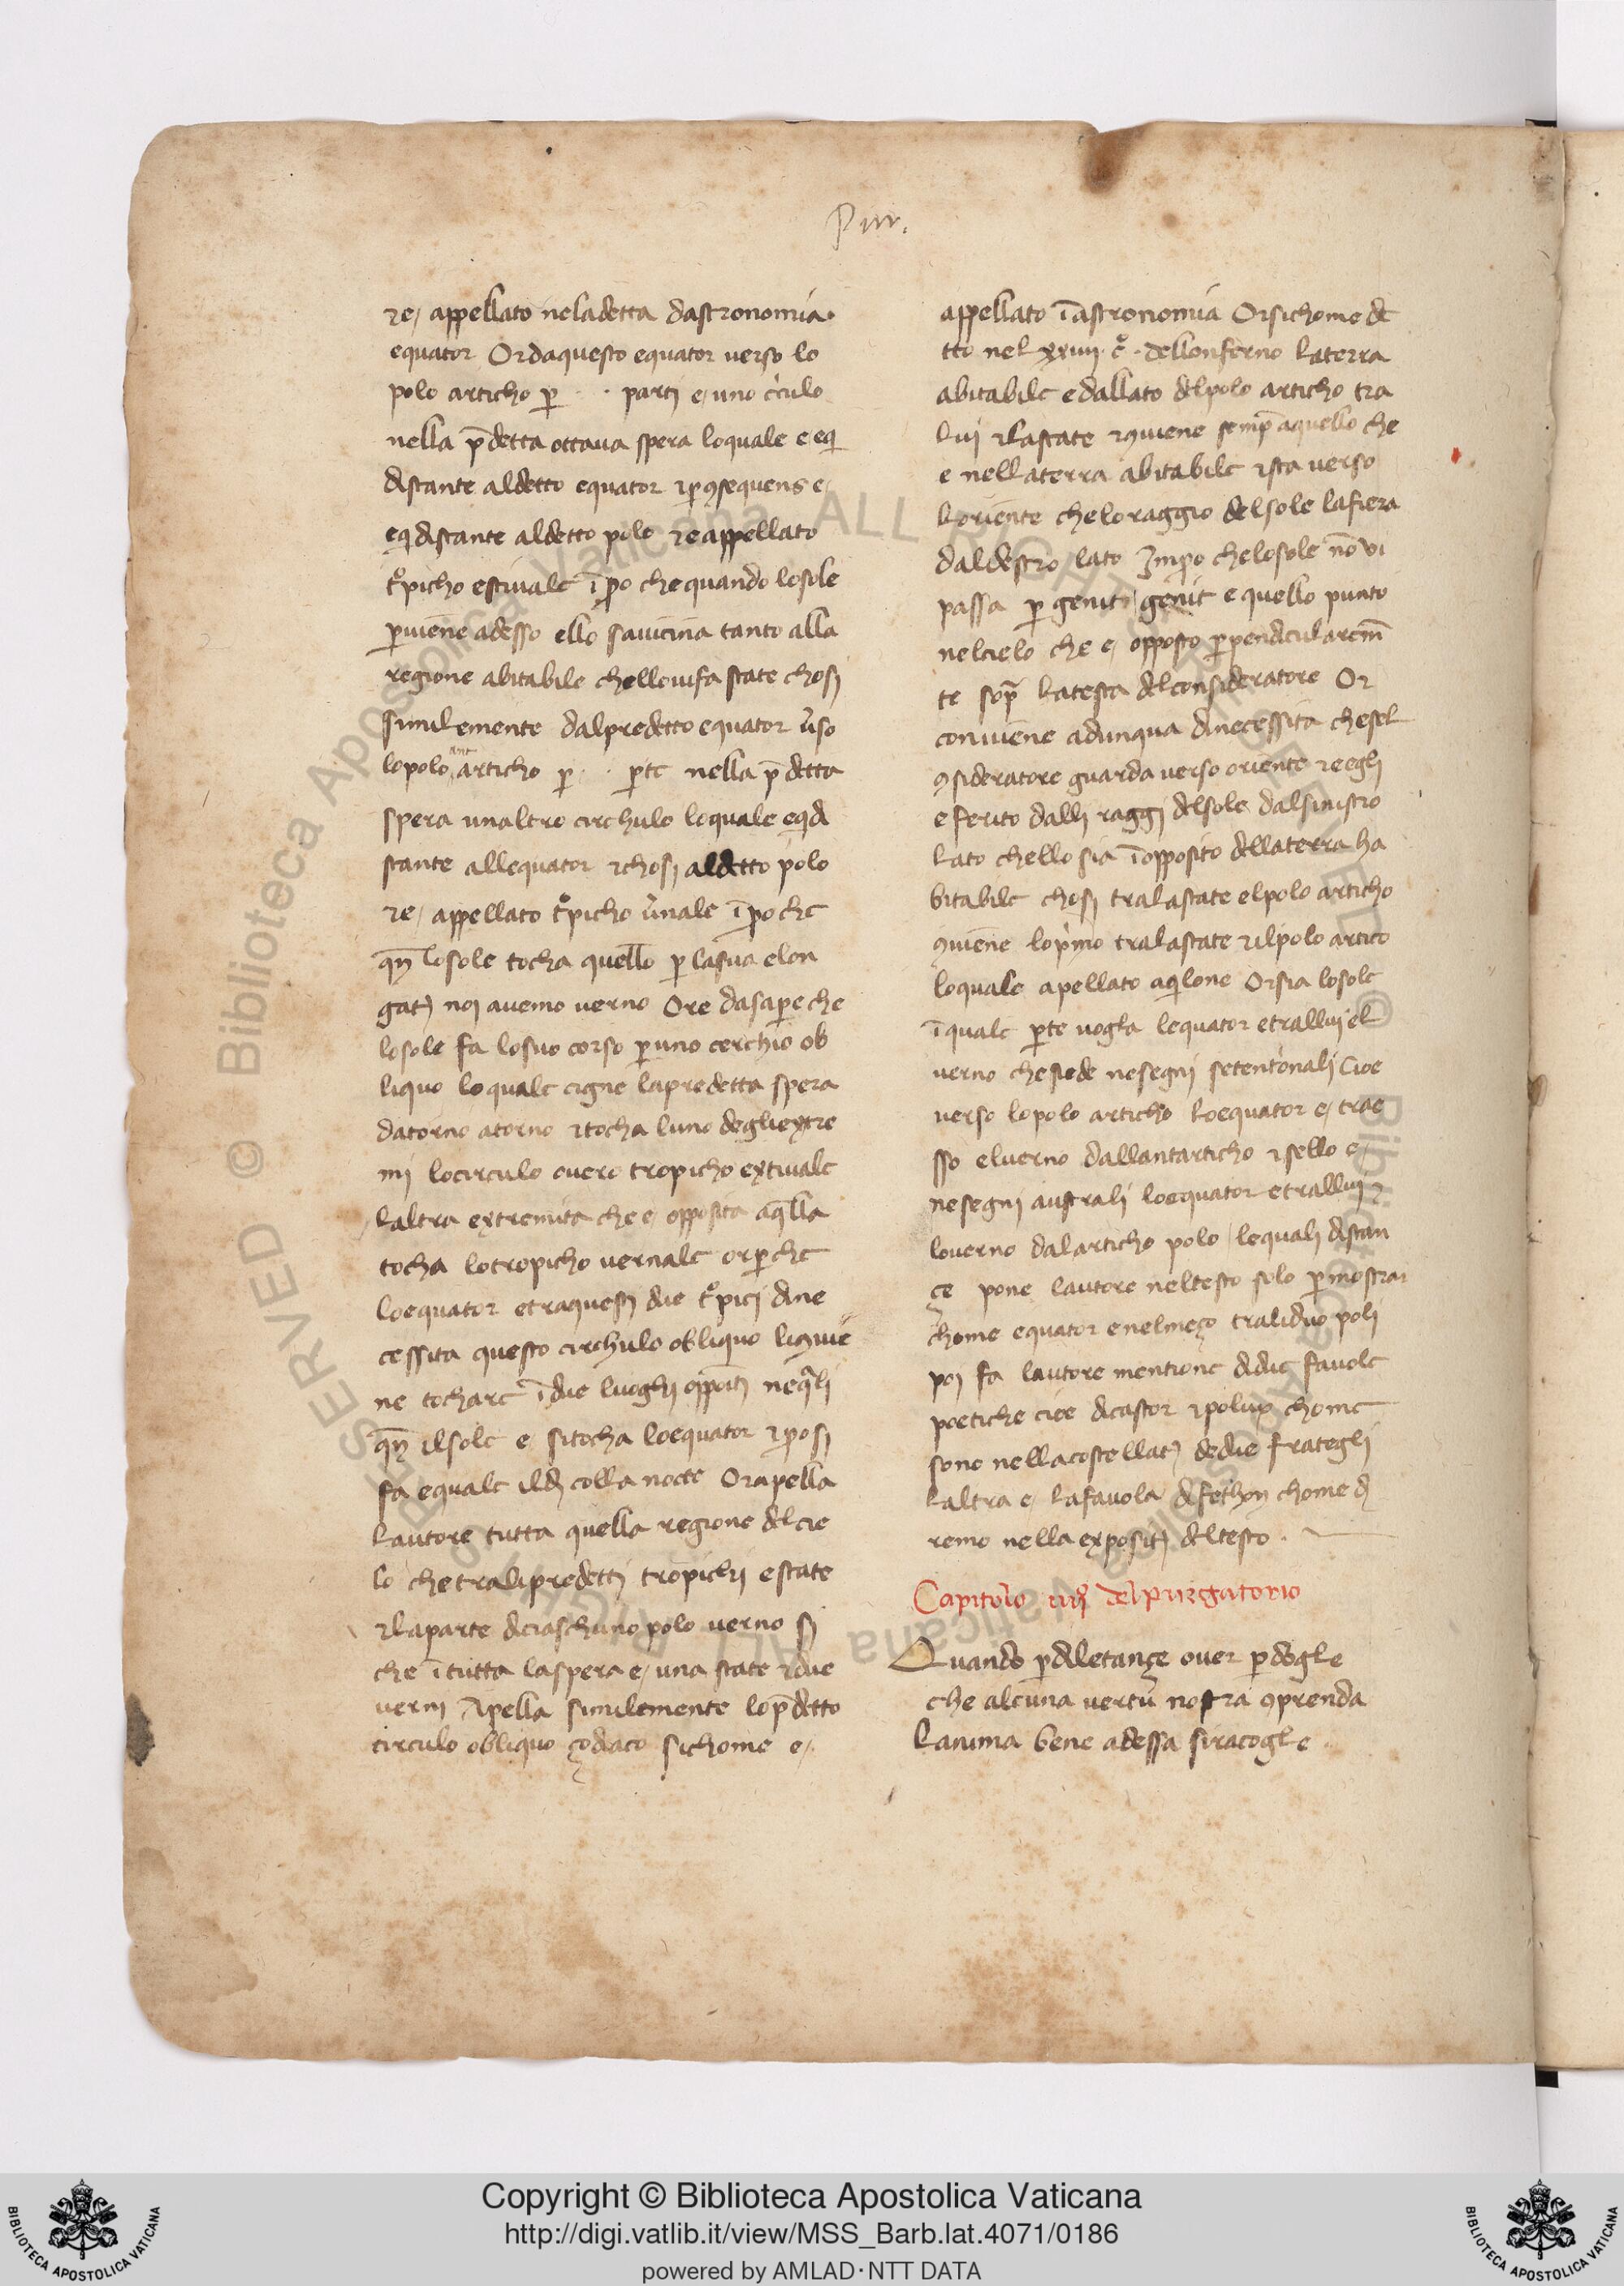 Pur.
⁊e, appellato neladetta dastronomia.
equator Ordaquesto equator verso lo
polo articho ꝑ . . parti e, uno c̓culo
nella p̄detta ottaua spera loquale e eq̇
distante aldetto equator ⁊ꝑꝯsequens e,
eq̇distante aldetto polo ⁊eappellato
t̊picho estiuale ī ꝑo chequando losole
ꝑuiene adesso ello sauicina tanto alla
regione abitabile chellouifa state chosi
similemente dalpredetto equator v̓so
lopolo antarticho ꝑ . . ꝑte nella p̄detta
spera unaltro circhulo loquale eq̇di
stante allequator ⁊chosi aldetto polo
⁊e, appellato t̊picho v̓nale īꝑoche
qn̄ losole tocha quello ꝑ lasua elon
gatꝫ noi auemo verno Ore dasaꝑe che
losole fa losuo corso ꝑ uno cerchio ob
liquo loquale cigne lapredetta spera
datorno atorno ⁊tocha luno degliextre
mi locirculo ouero tropicho extiuale
laltra extremita che e, opposita aq̄lla
tocha lotropicho vernale orꝑche
loequator etraquesti due t̊pici dine
cessita questo circhulo obliquo liꝯuie
ne tochare ī due luoghi oppoiti neq̄li
qn̄ ilsole e, sitocha loequator ⁊ꝑosi
fa equale ildi colla nocte Orapella
lautore tutta quella regione delcie
lo chetralipredetti tropichi estate
⁊laparte diciaschuno polo verno si
che ī tutta laspera e, una state ⁊due
verni Apella similemente lop̄detto
circulo obliquo çodiaco sichome e,
appellato ī astronomia Orsichome de
tto nel xxxiiii. c̊. dellonferno laterra
abitabile edallato delpolo articho tra
lui ⁊lastate ⁊ꝯuiene semp̄ aquello che
e nellaterra abitabile ⁊sta verso
loriente cheloraggio delsole lafiera
daldestro lato Imꝑo chelosole nōvi
passa ꝑ genit genit e quello punto
nelcielo che e, opposto ꝑpendicularem̄
te sop̄ latesta delconsideratore Or
conuiene adunqua dinecessita chesel
ꝯsideratore guarda verso oriente ⁊eegli
eferito dalli raggi delsole dalsinistro
lato chello sia ī opposito dellaterra ha
bitabile chosi tralastate elpolo articho
ꝯuiene lop̓mo tralastate ⁊ilpolo artico
loquale apellato aq̇lone Orsia losole
ī quale ꝑte vogla lequator etrallui el
verno chesiede nesegni setent̓onali Cioe
verso lopolo articho loequator e, trae
sso eluerno dallantarticho ⁊sello e,
nesegni australi loequator etrallui ⁊
louerno dalarticho polo, lequali distan
çe pone lautore neltesto solo ꝑmostrar
chome equator enelmeço tralidno poli
poi fa lautore mentione didue fauole
poetiche cioe dicastor ⁊polux chome
sono nellacostellatꝫ dedue frategli
laltra e, lafauola difeton chome di
remo nella expositꝫ deltesto.
Capitolo iiijͦ del purgatorio
Quando ꝑdiletançe ouer ꝑdogle
che alcuna vertu nostra ꝯprenda
lanima bene adessa siracogle
Copyright © Biblioteca Apostolica Vaticana
http://digi.vatlib.it/view/MSS_Barb.lat.4071/0186
powered by AMLAD·NTT DATA